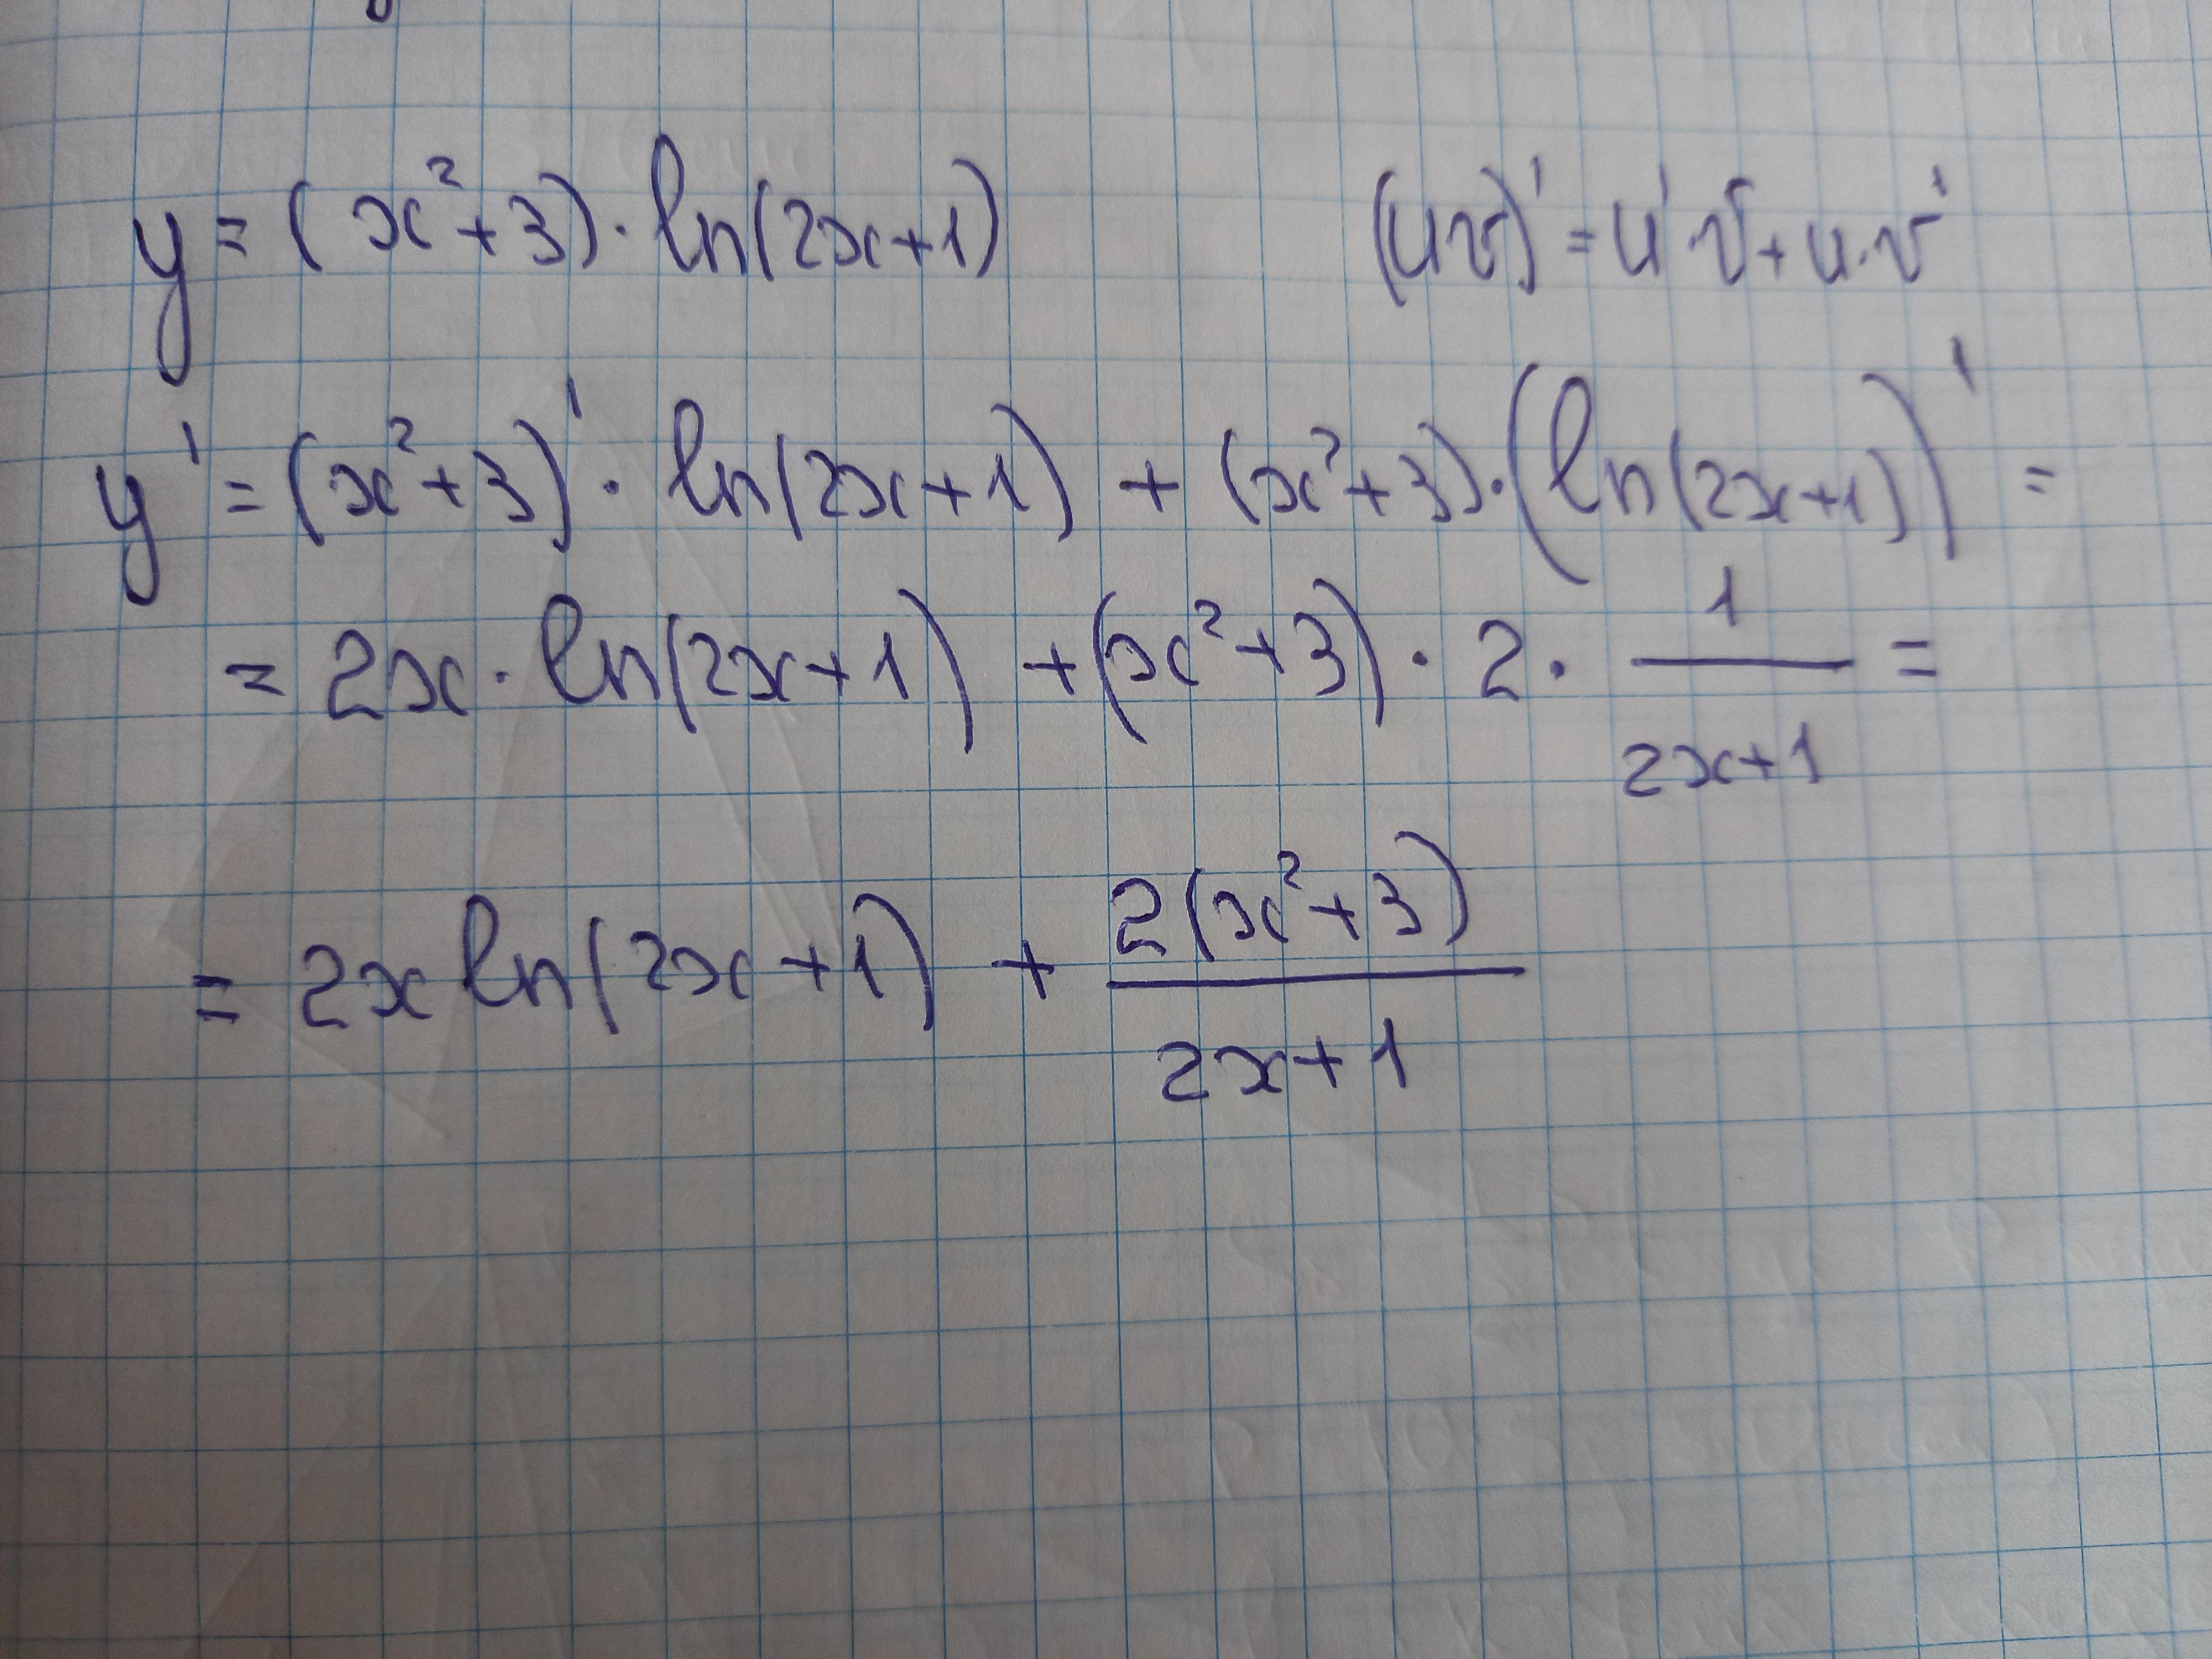 y = (x²+3)·ln(2x+1) (uv)' = u'·v + u·v'
y' = (x²+3)'·ln(2x+1) + (x²+3)·(ln(2x+1))' =
= 2x·ln(2x+1) + (x²+3)·2·1/(2x+1) =
= 2x ln(2x+1) + 2(x²+3)/(2x+1)